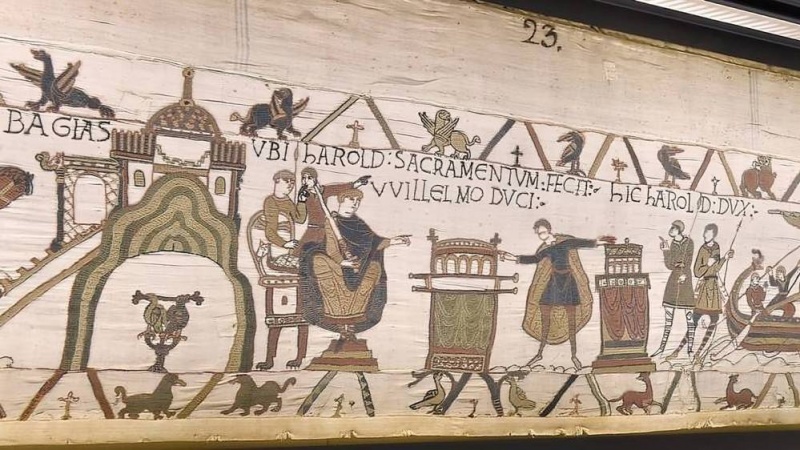 23.
BAGIAS
VBI hAROLD: SACRAMENTVM: FECIT:
VVILLELMO DVCI:
hIC hAROLD: DVX: